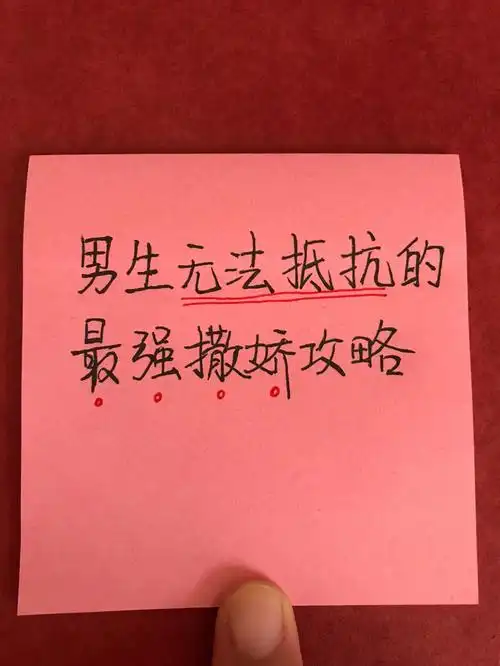 男生无法抵抗的
最强撒娇攻略